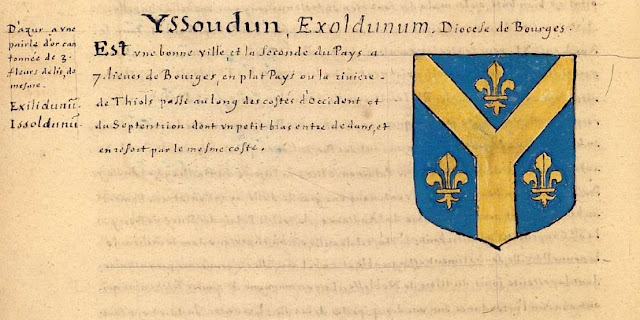 Yssoudun, Exoldunum. Diocese de Bourges.
D'azur a vne
pairle d'or can
tonnée de 3.
fleurs de lis, de
mesme.
Exilidunū.
Issoldunū.
Est vne bonne ville et la seconde du Pays a
7. lieues de Bourges, en plat Pays ou la riuiere
de Thiols passe au long des costés d'Occident et
du Septentrion dont vn petit bias entre dedans, et
en ressort par le mesme costé.